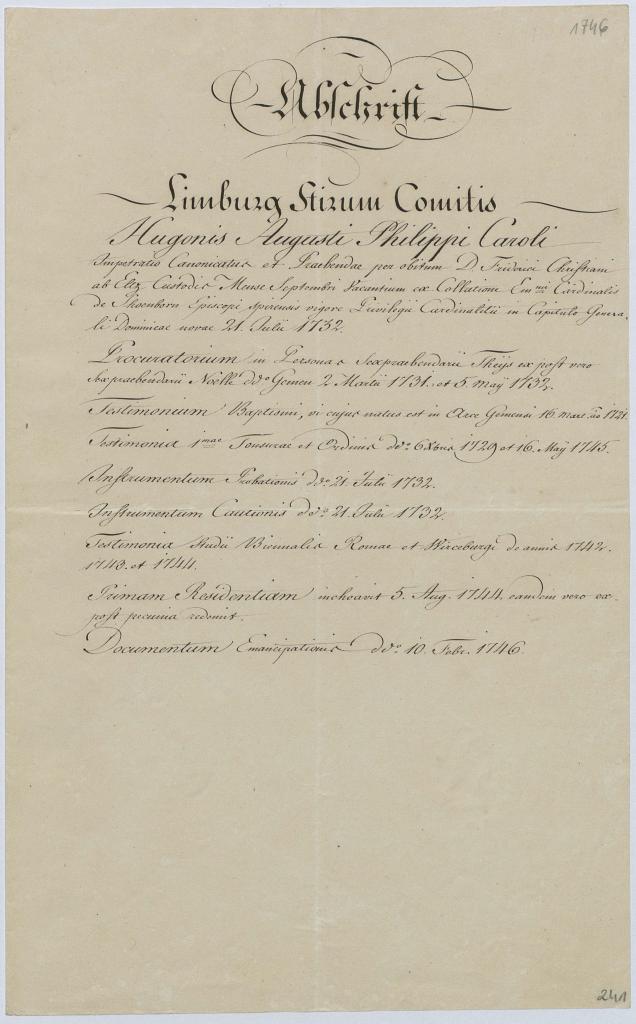 1746
Abschrift
Limburg Stirum Comitis
Hugonis Augusti Philippi Caroli
Impetratio Canonicatus et Praebendae per obitum D. Friderici Christiani
ab Eltz Custodis Mense Septembri vacantum ex Collatione Em̅mi Cardinalis
de Shoenborn Episcopi spirensis vigore Privilegii Cardinalitii in Capitulo Genera-
li Dominicae novae 21. Julii 1732.
Procuratorium in Personas Sexpraebendarii Theijs ex post vero
sexpraebendarii Noelle ddo Gemen 2. Martii 1731. et 5. maij 1732.
Testimonium Baptismi, vi cujus natus est in Arce Gimensi 16. mart. ao 1721.
Testimonia 1mae Tonsurae et Ordinis ddo 6 Xbris 1729 et 16. Maij 1745.
Instrumentum Probationis ddo 21. Julii 1732.
Instrumentum Cautionis ddo 21. Julii 1732.
Testimonia studii Biennalis Romae et Wirceburgi de annis 1742.
1743. et 1744.
Primam Residentiam inchoavit 5. Aug. 1744. eandem vero ex-
post pecunia redemit.
Documentum Emancipationis ddo 10. Febr. 1746.
241